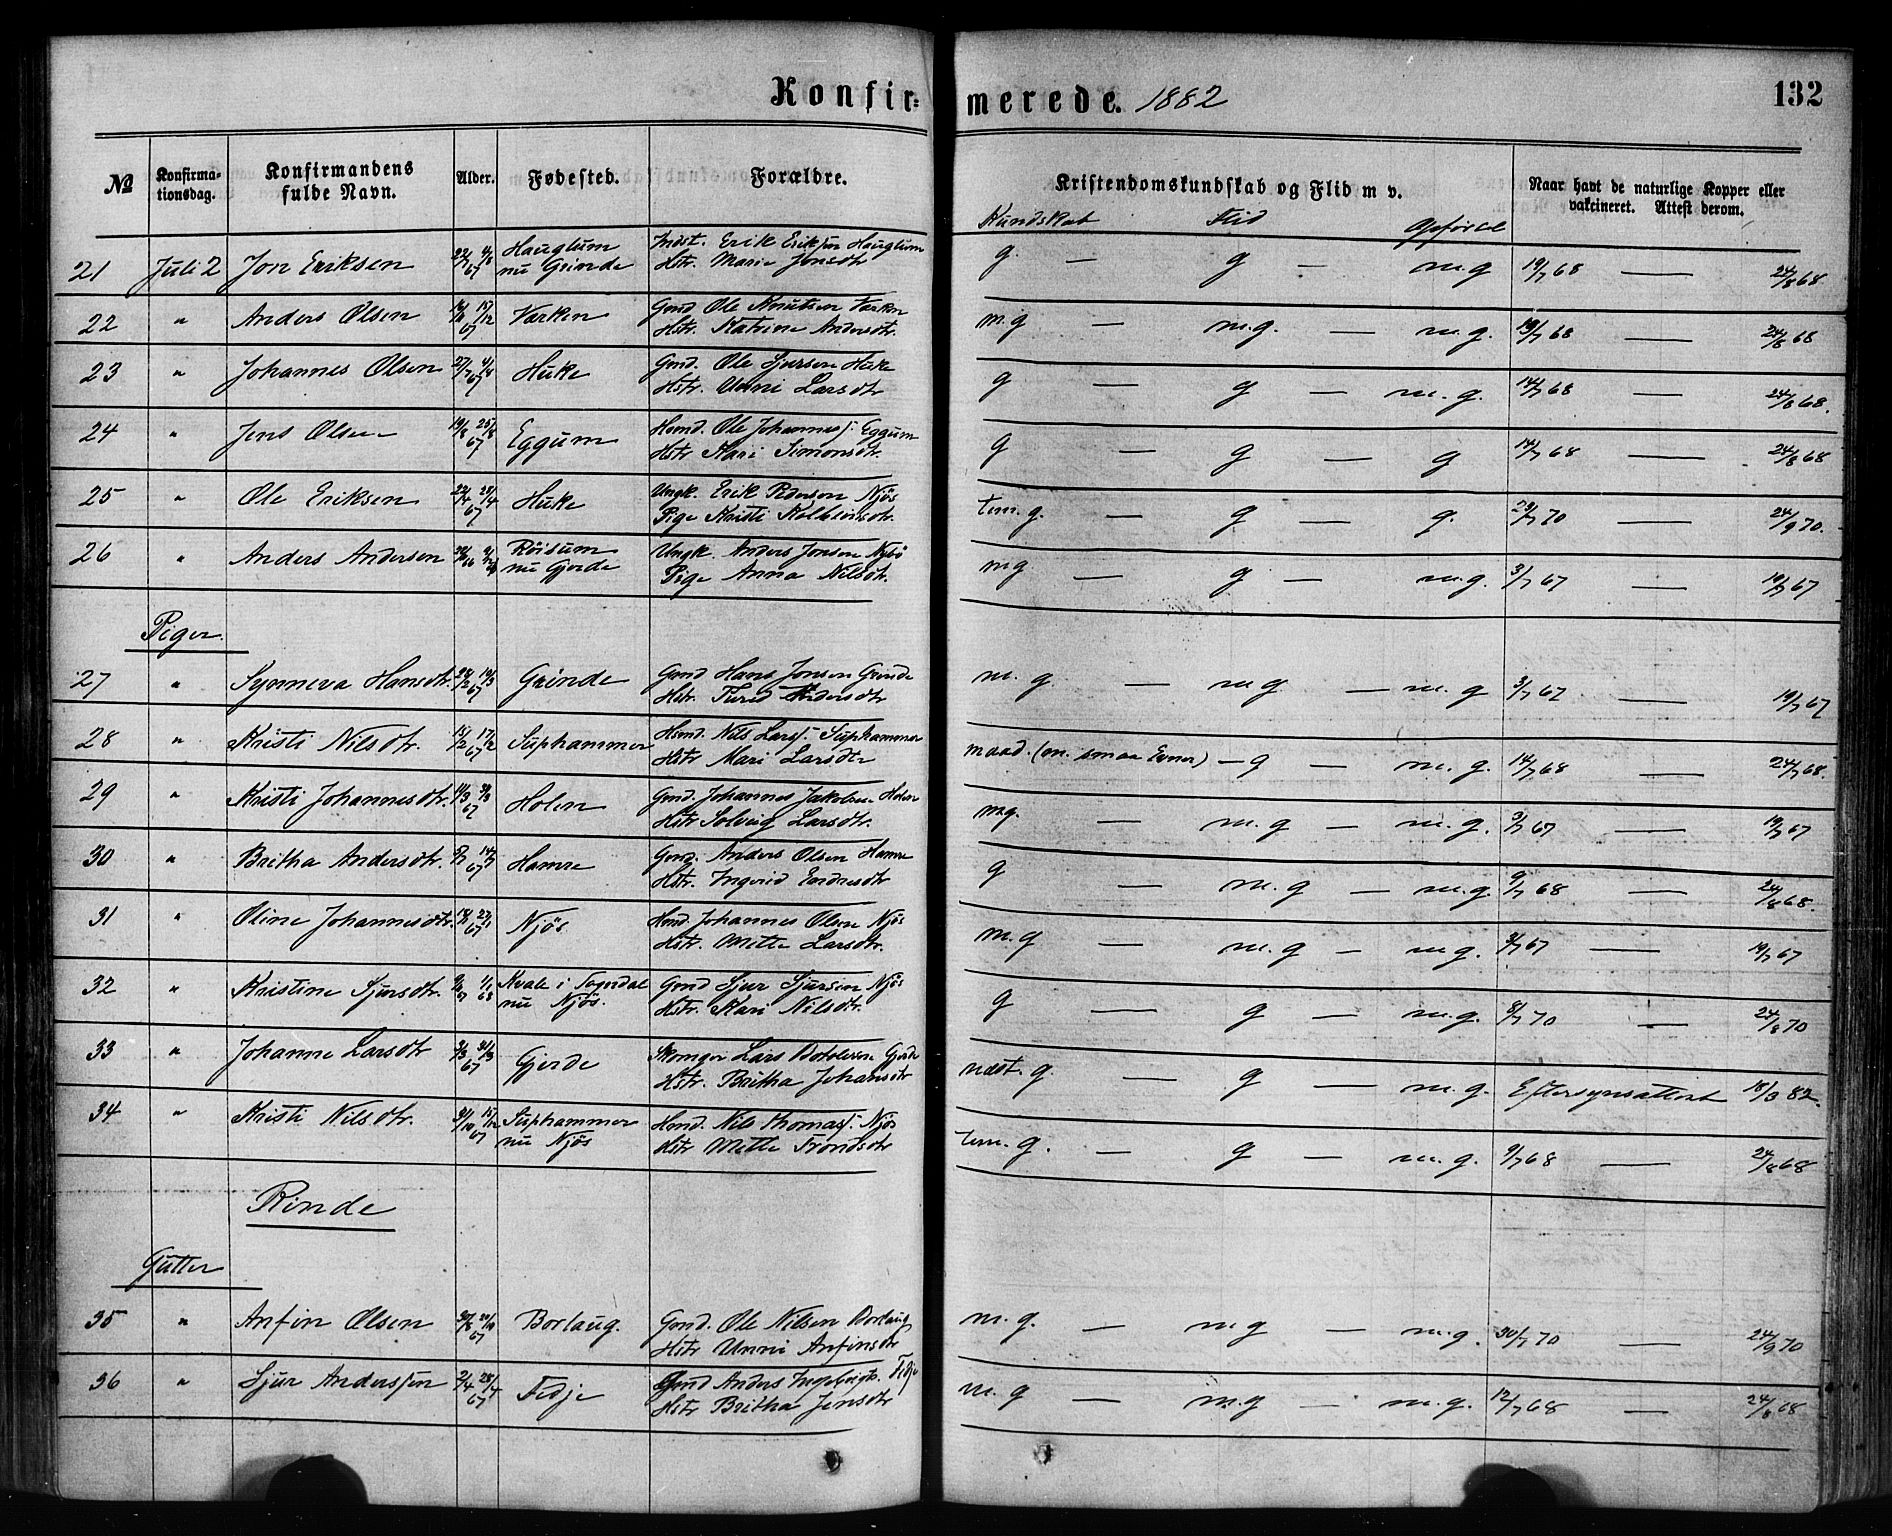 Konfirmerede. 1882
132
№ Konfirmationsdag. Konfirmandens fulde Navn. Alder. Fødested. Forældre. Kristendomskundskab og Flid m v. Naar havt de naturlige Kopper eller vakcineret. Attest derom.
Kundskab Flid Opførsel
21 Juli 2 Jon Eriksen 22/7 4/8 67 Hauglum nu Grinde Indst. Erik Eriksen Hauglum Hstr. Marie Jonsdtr g. — g — m.g 19/7 68 — 24/8 68.
22 " Anders Olsen 15/12 67 Varken Gmd Ole Knutsen Varken Hstr. Katrine Andersdtr. m.g — m.g. — m.g. 19/7 68 — 24/8 68
23 " Johannes Olsen 27/7 4/8 67 Huke Gmd. Ole Sjursen Huke Hstr. Unni Larsdtr g — g — m.g. 14/7 68 — 24/8 68.
24 " Jens Olsen 19/8 25/8 67 Eggum Hsmd. Ole Johanness. Eggum Hstr Kari Simonsdtr. g — g — g 14/7 68 — 24/8 68
25 " Ole Eriksen 22/4 28/4 67 Huke Ungk. Erik Pedersen Njøs Pige Kristi Kolbeinsdtr. tem. g. — g — g. 29/7 70 — 24/9 70.
26 " Anders Andersen Røisum nu Gjerde Ungk. Anders Jonsen Nybø Pige Anna Nilsdtr. mg — g — m.g. 3/7 67 — 19/7 67
Piger.
27 " Synneva Hansdtr. 24/2 10/3 67 Grinde Gmd Hans Jonsen Grinde Hstr. Turid Andersdtr m. g. — mg — m. g 3/7 67 — 19/7 67
28 " Kristi Nilsdtr. 15/2 17/2 67 Suphammer Hsmd. Nils Larss. Suphammer Hstr Mari Larsdtr maad. (m. smaa Evner) — g — m. g. 14/7 68 — 24/7 68.
29 " Kristi Johannesdtr. 11/3 31/3 67 Holen Gmd. Johannes Jakobsen Holen Hstr Solveig Larsdtr. mg. — m.g — m.g. 3/7 67 — 19/7 67
30 " Britha Andersdtr. 14/7 67 Hamre Gmd. Anders Olsen Hamre Hstr. Ingerid Endresdtr g — m.g — m.g. 9/7 68 — 24/8 68.
31 " Oline Johannesdtr. 27/1 67 Njøs Hsmd. Johannes Olsen Njøs Hstr. Mette Larsdtr. m.g — m.g — m.g. 3/7 67 — 19/7 67
32 " Kristine Sjursdtr. 1/1 68 Kvale i Sogndal nu Njøs. Gmd Sjur Sjursen Njøs Hstr. Kari Nilsdtr. g — g — m.g. 8/7 70 — 24/8 70
33 " Johanne Larsdtr 3/3 31/3 67 Gjerde Skomger Lars Botolvsen Gjerde Hstr. Britha Johansdtr ndst. g. — g — m.g. Eftersynsattest 18/3 82.
34 " Kristi Nilsdtr. 31/10 15/12 67 Suphammer nu Njøs Hsmd. Nils Thomass. Njøs Hstr Mette Trondsdtr tem. g. — g — m.g. 9/7 68 — 24/8 68
Rinde
Gutter
35 " Anfin Olsen 67 Borlaug. Gmd. Ole Nilsen Borlaug Hstr Unni Anfinsdtr m.g. — mg — m.g. 30/7 70 — 24/9 70
36 " Sjur Anderssen 2/4 28/4 67 Fedje Gmd Anders Ingebrigts. Fedje Hstr Britha Jensdtr m. g — m.g — m.g. 12/7 68 — 24/8 68